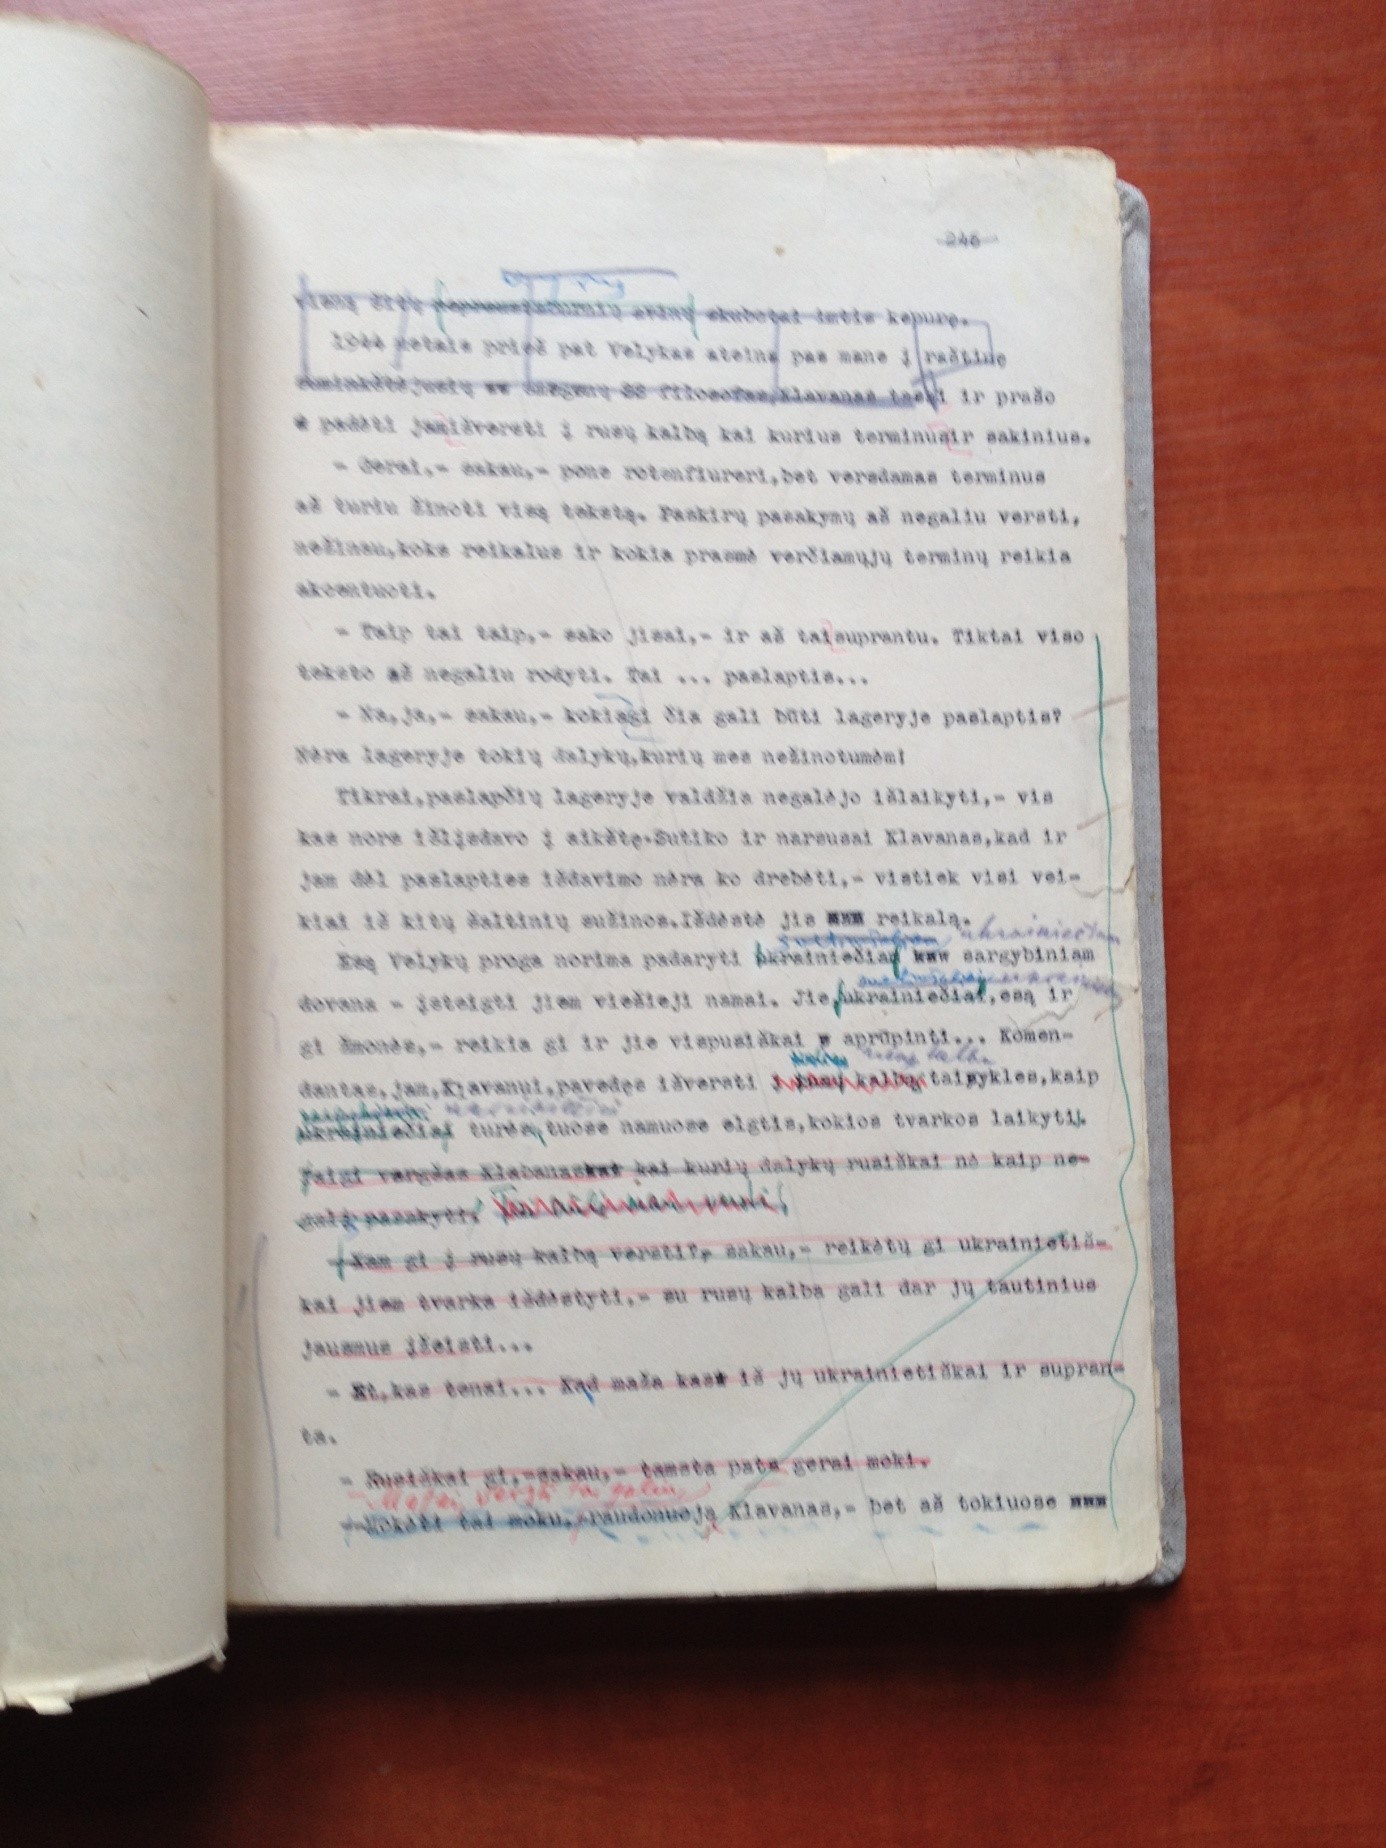 246
vieną šitų skubotai imtis kepurę.
1944 metais prieš pat Velykas ateina pas mane į raštinę
SS filosofas, Klavanas tasai ir prašo
padėti jam išversti į rusų kalbą kai kurius terminus ir sakinius.
- Gerai,- sakau,- pone rotenfiureri,bet versdamas terminus
aš turiu žinoti visą tekstą. Paskirų pasakymų aš negaliu versti,
nežinau,koks reikalus ir kokia prasmė verčiamųjų terminų reikia
akcentuoti.
- Taip tai taip,- sako jisai,- ir aš tai suprantu. Tiktai viso
teksto aš negaliu rodyti. Tai ... paslaptis...
- Na,ja,- sakau,- kokia gi čia gali būti lageryje paslaptis?
Nėra lageryje tokių dalykų,kurių mes nežinotumėm!
Tikrai,paslapčių lageryje valdžia negalėjo išlaikyti,- vis
kas nors išlįsdavo į aikštę.Sutiko ir narsusai Klavanas,kad ir
jam dėl paslapties išdavimo nėra ko drebėti,- vistiek visi vei-
kiai iš kitų šaltinių sužinos.Išdėstė jis reikalą.
ukrainiečiam
Esą Velykų proga norima padaryti ukrainiečiam sargybiniam
dovana - įsteigti jiem viešieji namai. Jie,ukrainiečiai,esą ir
gi žmonės,- reikia gi ir jie vispusiškai aprūpinti... Komen-
rusų kalba
dantas,jam,Klavanui,pavedęs išversti į rusų kalbą taisykles,kaip
ukrainiečiai turės tuose namuose elgtis,kokios tvarkos laikytis.
Taigi vargšas Klabanas kai kurių dalykų rusiškai nė kaip ne-
galįs pasakyti.
- Kam gi į rusų kalbą versti?,- sakau,- reikėtų gi ukrainietiš-
kai jiem tvarka išdėstyti,- su rusų kalba gali dar jų tautinius
jausmus įžeisti...
- Et,kas tenai... Kad maža kas iš jų ukrainietiškai ir supran-
ta.
- Rusiškai gi,-sakau,- tamsta pats gerai moki.
- Mokėti tai moku,-raudonuoja Klavanas,- bet aš tokiuose